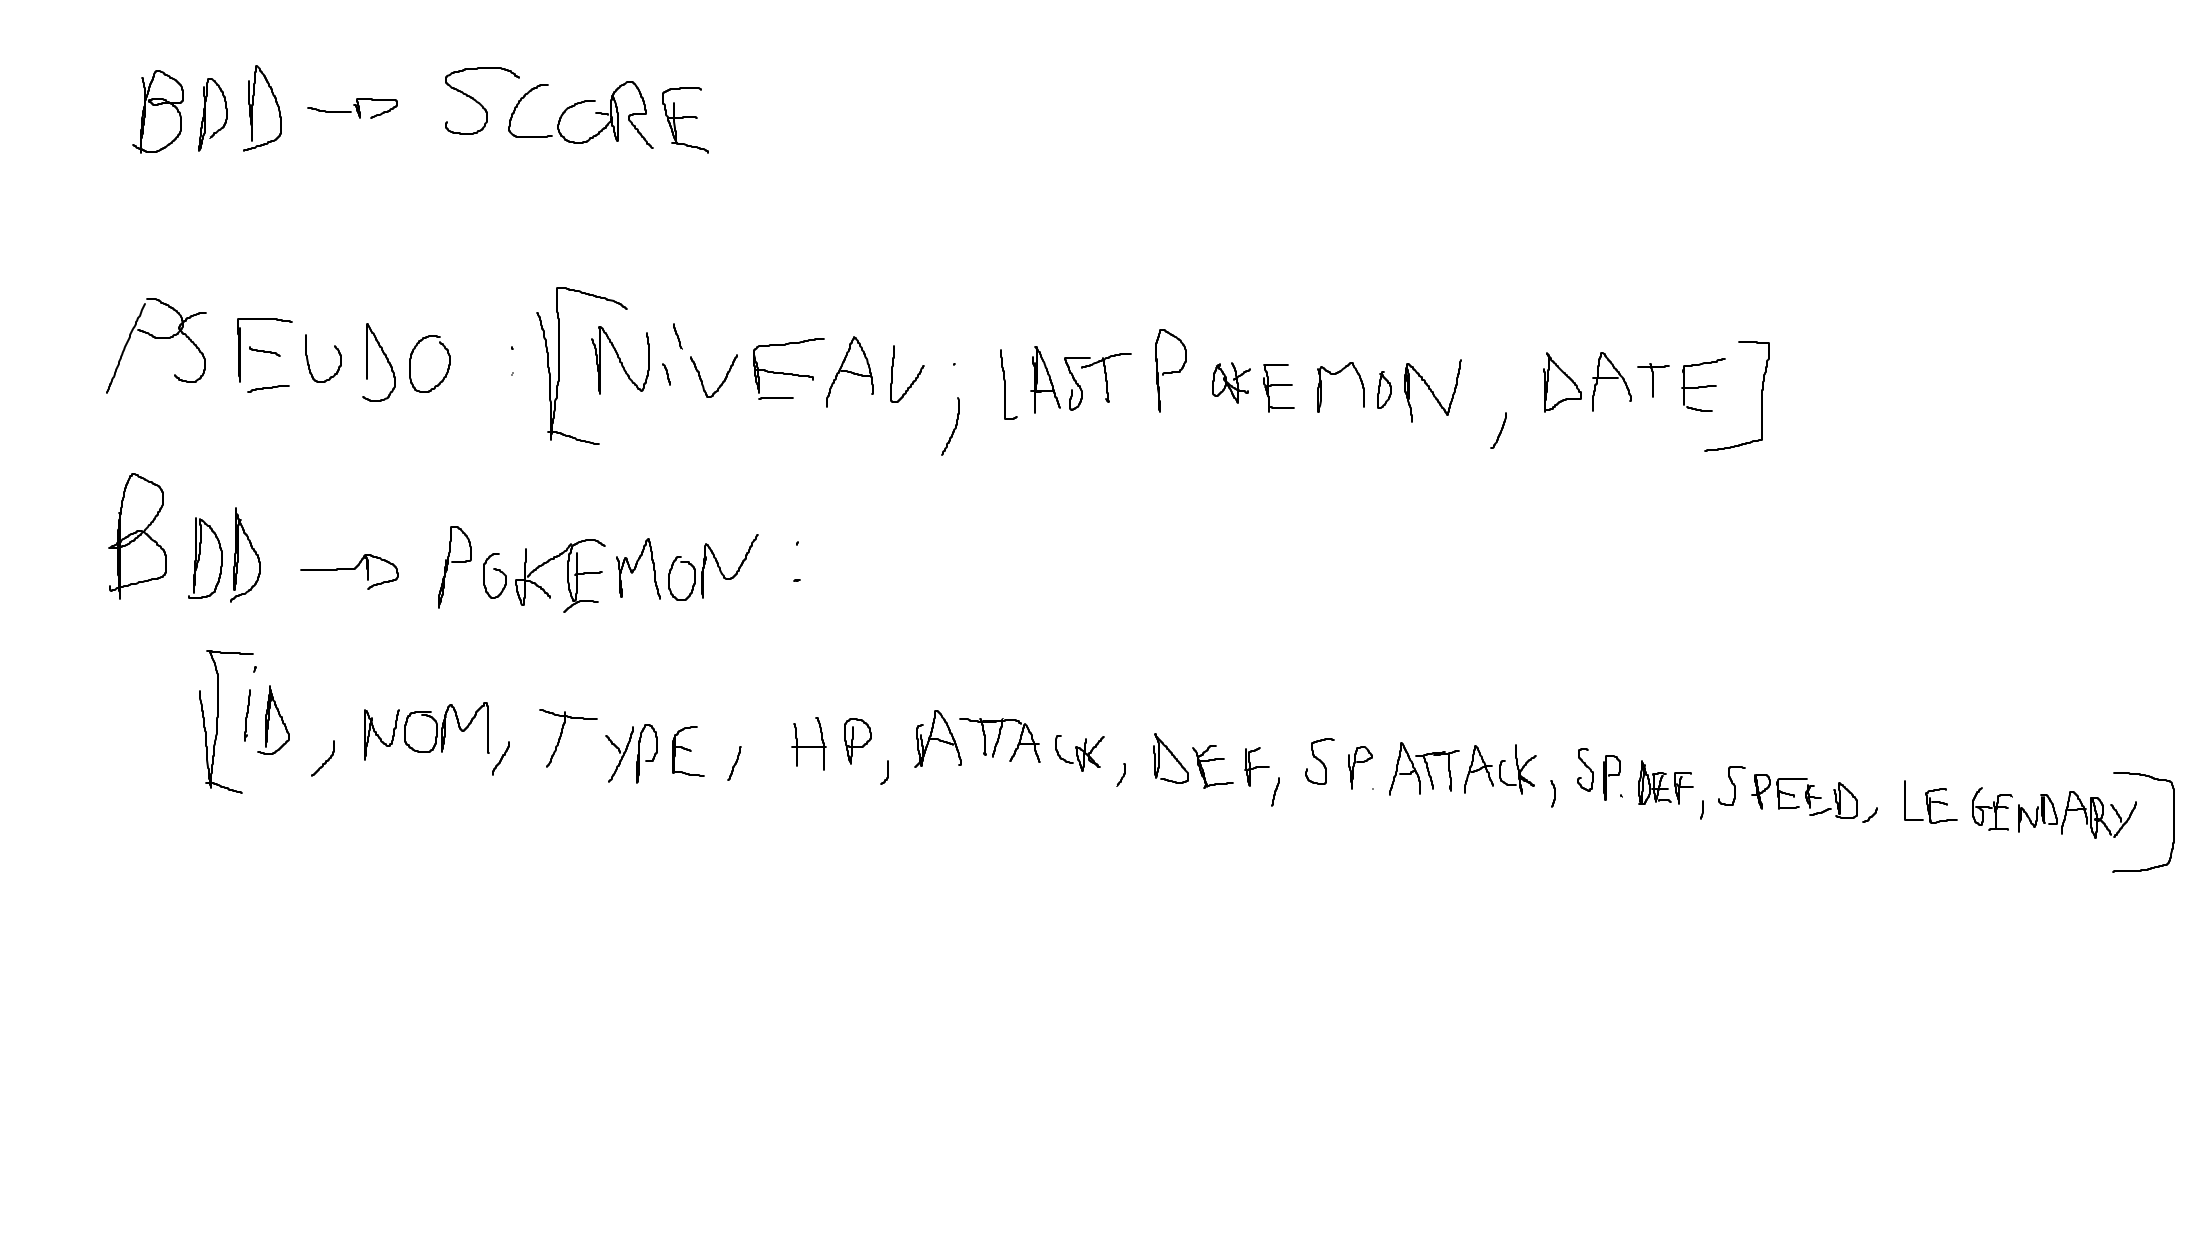 BDD → SCORE
PSEUDO : [NiVEAU ; LAST POKEMON , DATE]
BDD → POKEMON :
[iD , NOM, TYPE, HP, ATTACK, DEF, SP. ATTACK, SP. DEF, SPEED, LEGENDARY]